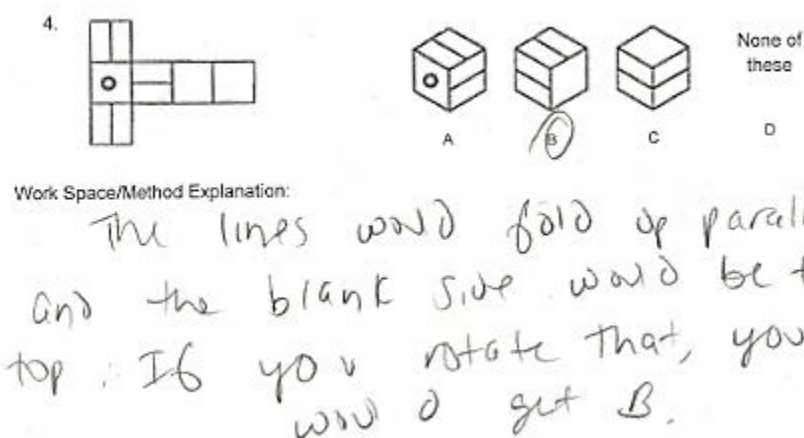 4.
None of
these
A
B
C
D
Work Space/Method Explanation:
The lines would fold up
and the blank side would be
top. If you rotate that, you
would get B.